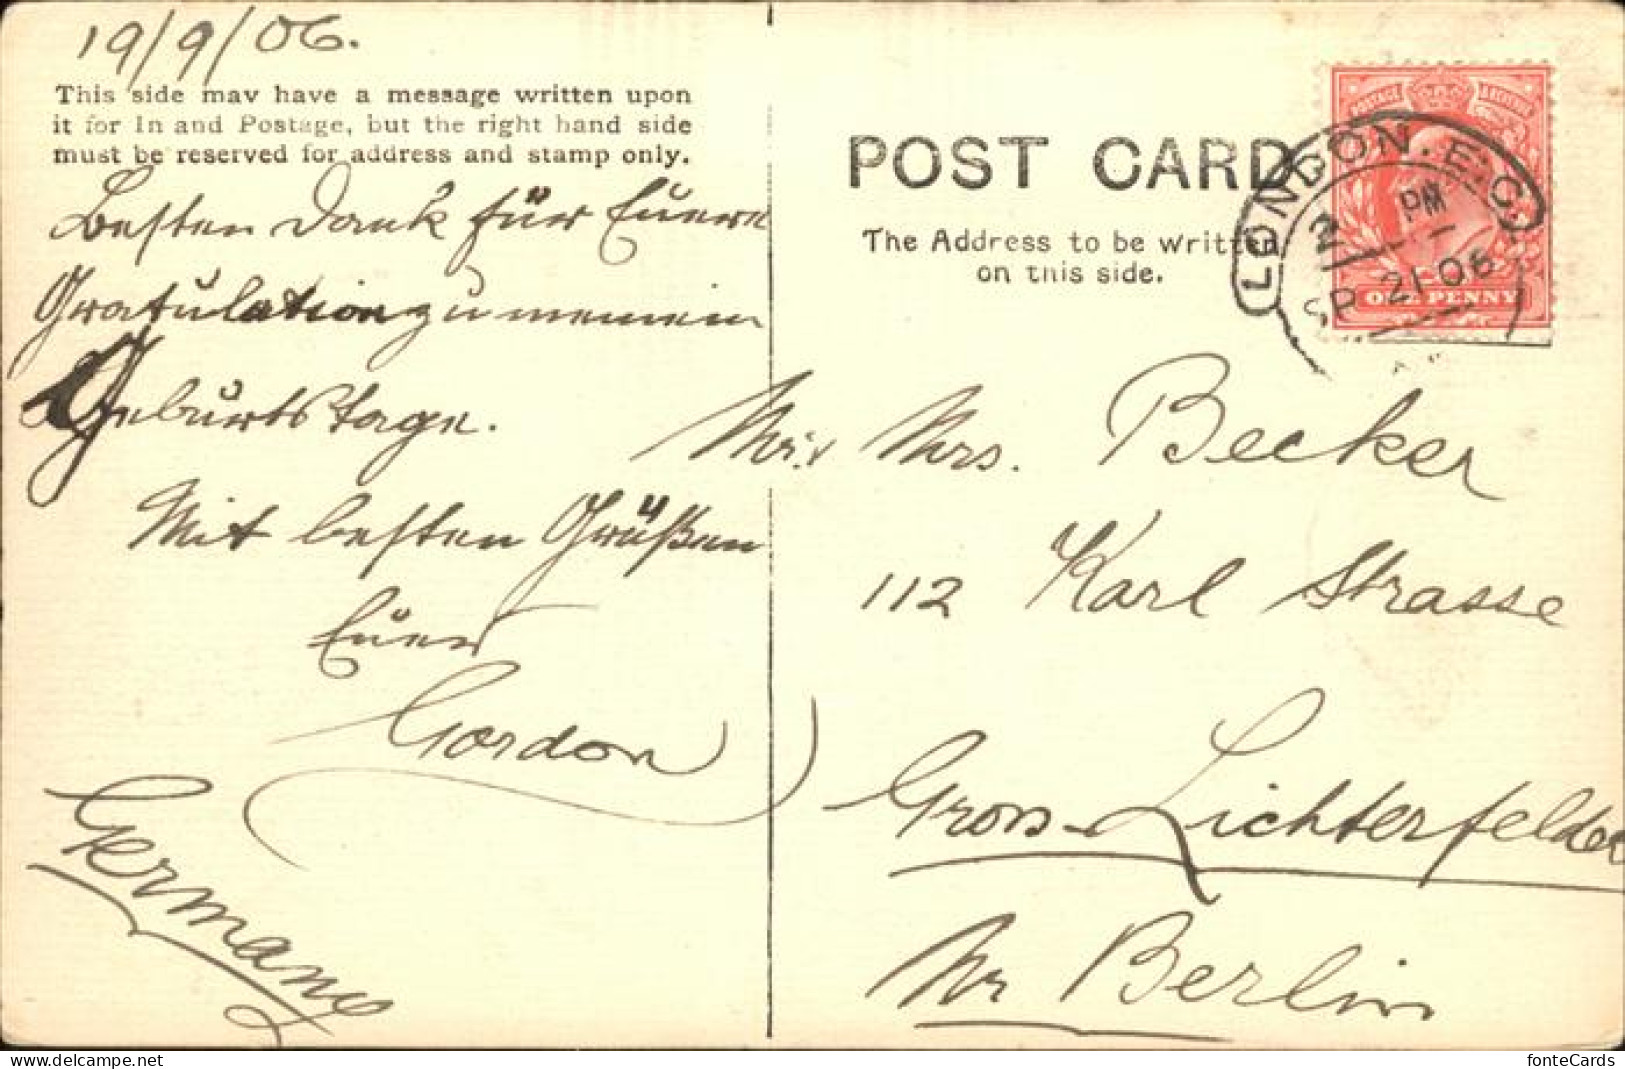 19/9/06.
This side may have a message written upon
it for In and Postage, but the right hand side
must be reserved for address and stamp only.
Besten Dank für Euere
Gratulation zu meinem
Geburtstage.
Mit besten Grüßen
Euer
Gordon
Germany
POST CARD
The Address to be written
on this side.
POSTAGE REVENUE
ONE PENNY
LONDON. E.C.
2 PM
SP 21 06
Mr. Mrs. Becker
112 Karl Strasse
Gross-Lichterfelde
Nr Berlin
fonteCards
https://www.delcampe.net